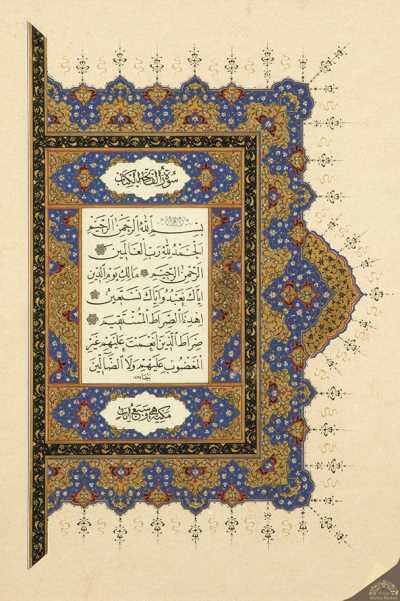 سورة فاتحة الكتاب
بسم الله الرحمن الرحيم
الحمد لله رب العالمين
الرحمن الرحيم مالك يوم الدين
اياك نعبد و اياك نستعين
اهدنا الصراط المستقيم
صراط الذين انعمت عليهم غير
المغضوب عليهم ولا الضالين
مكية وهى سبع آيات